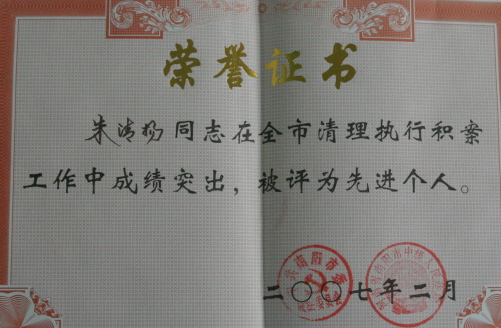 荣誉证书
朱清杨同志在全市清理执行积案
工作中成绩突出，被评为先进个人。
二〇〇七年二月